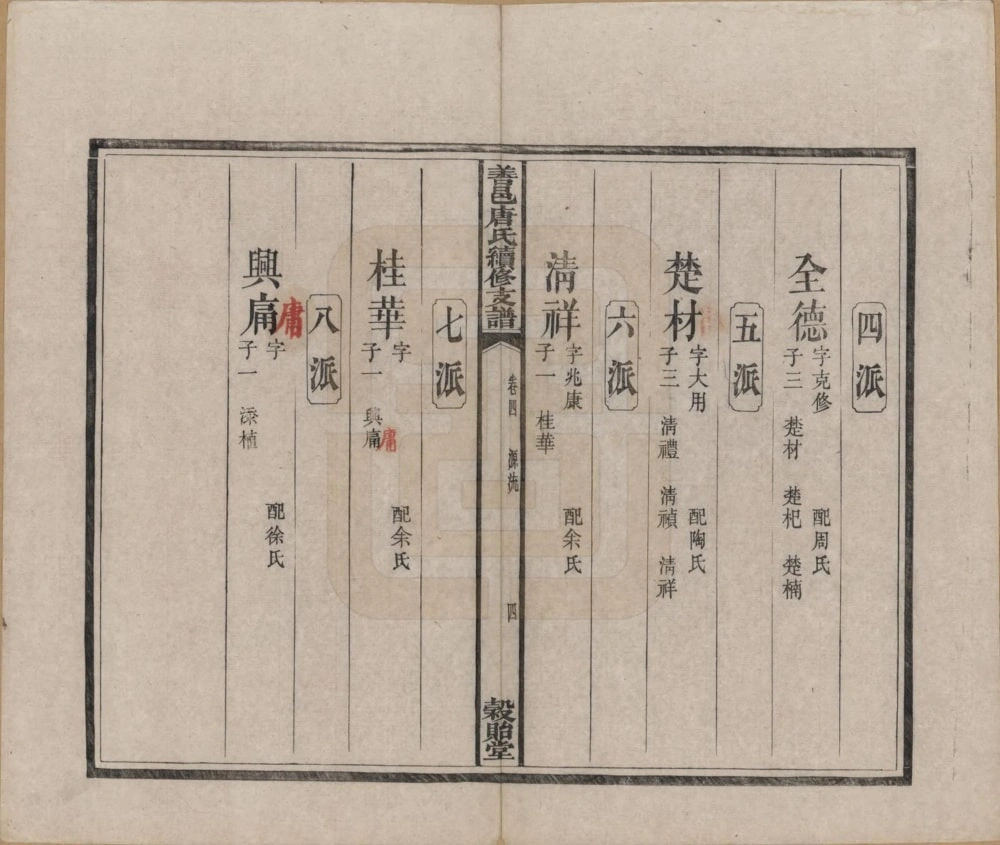 四派
全德
字克修 配周氏
子三 楚材 楚杞 楚楠
五派
楚材
字大用 配陶氏
子三 淸禮 淸禎 淸祥
六派
淸祥
字兆康 配余氏
子一 桂華
善邑唐氏續修支譜
卷四 源流 四
穀貽堂
七派
桂華
字 配余氏
子一 興庯
庸
八派
興庯
庸
字 配徐氏
子一 添植